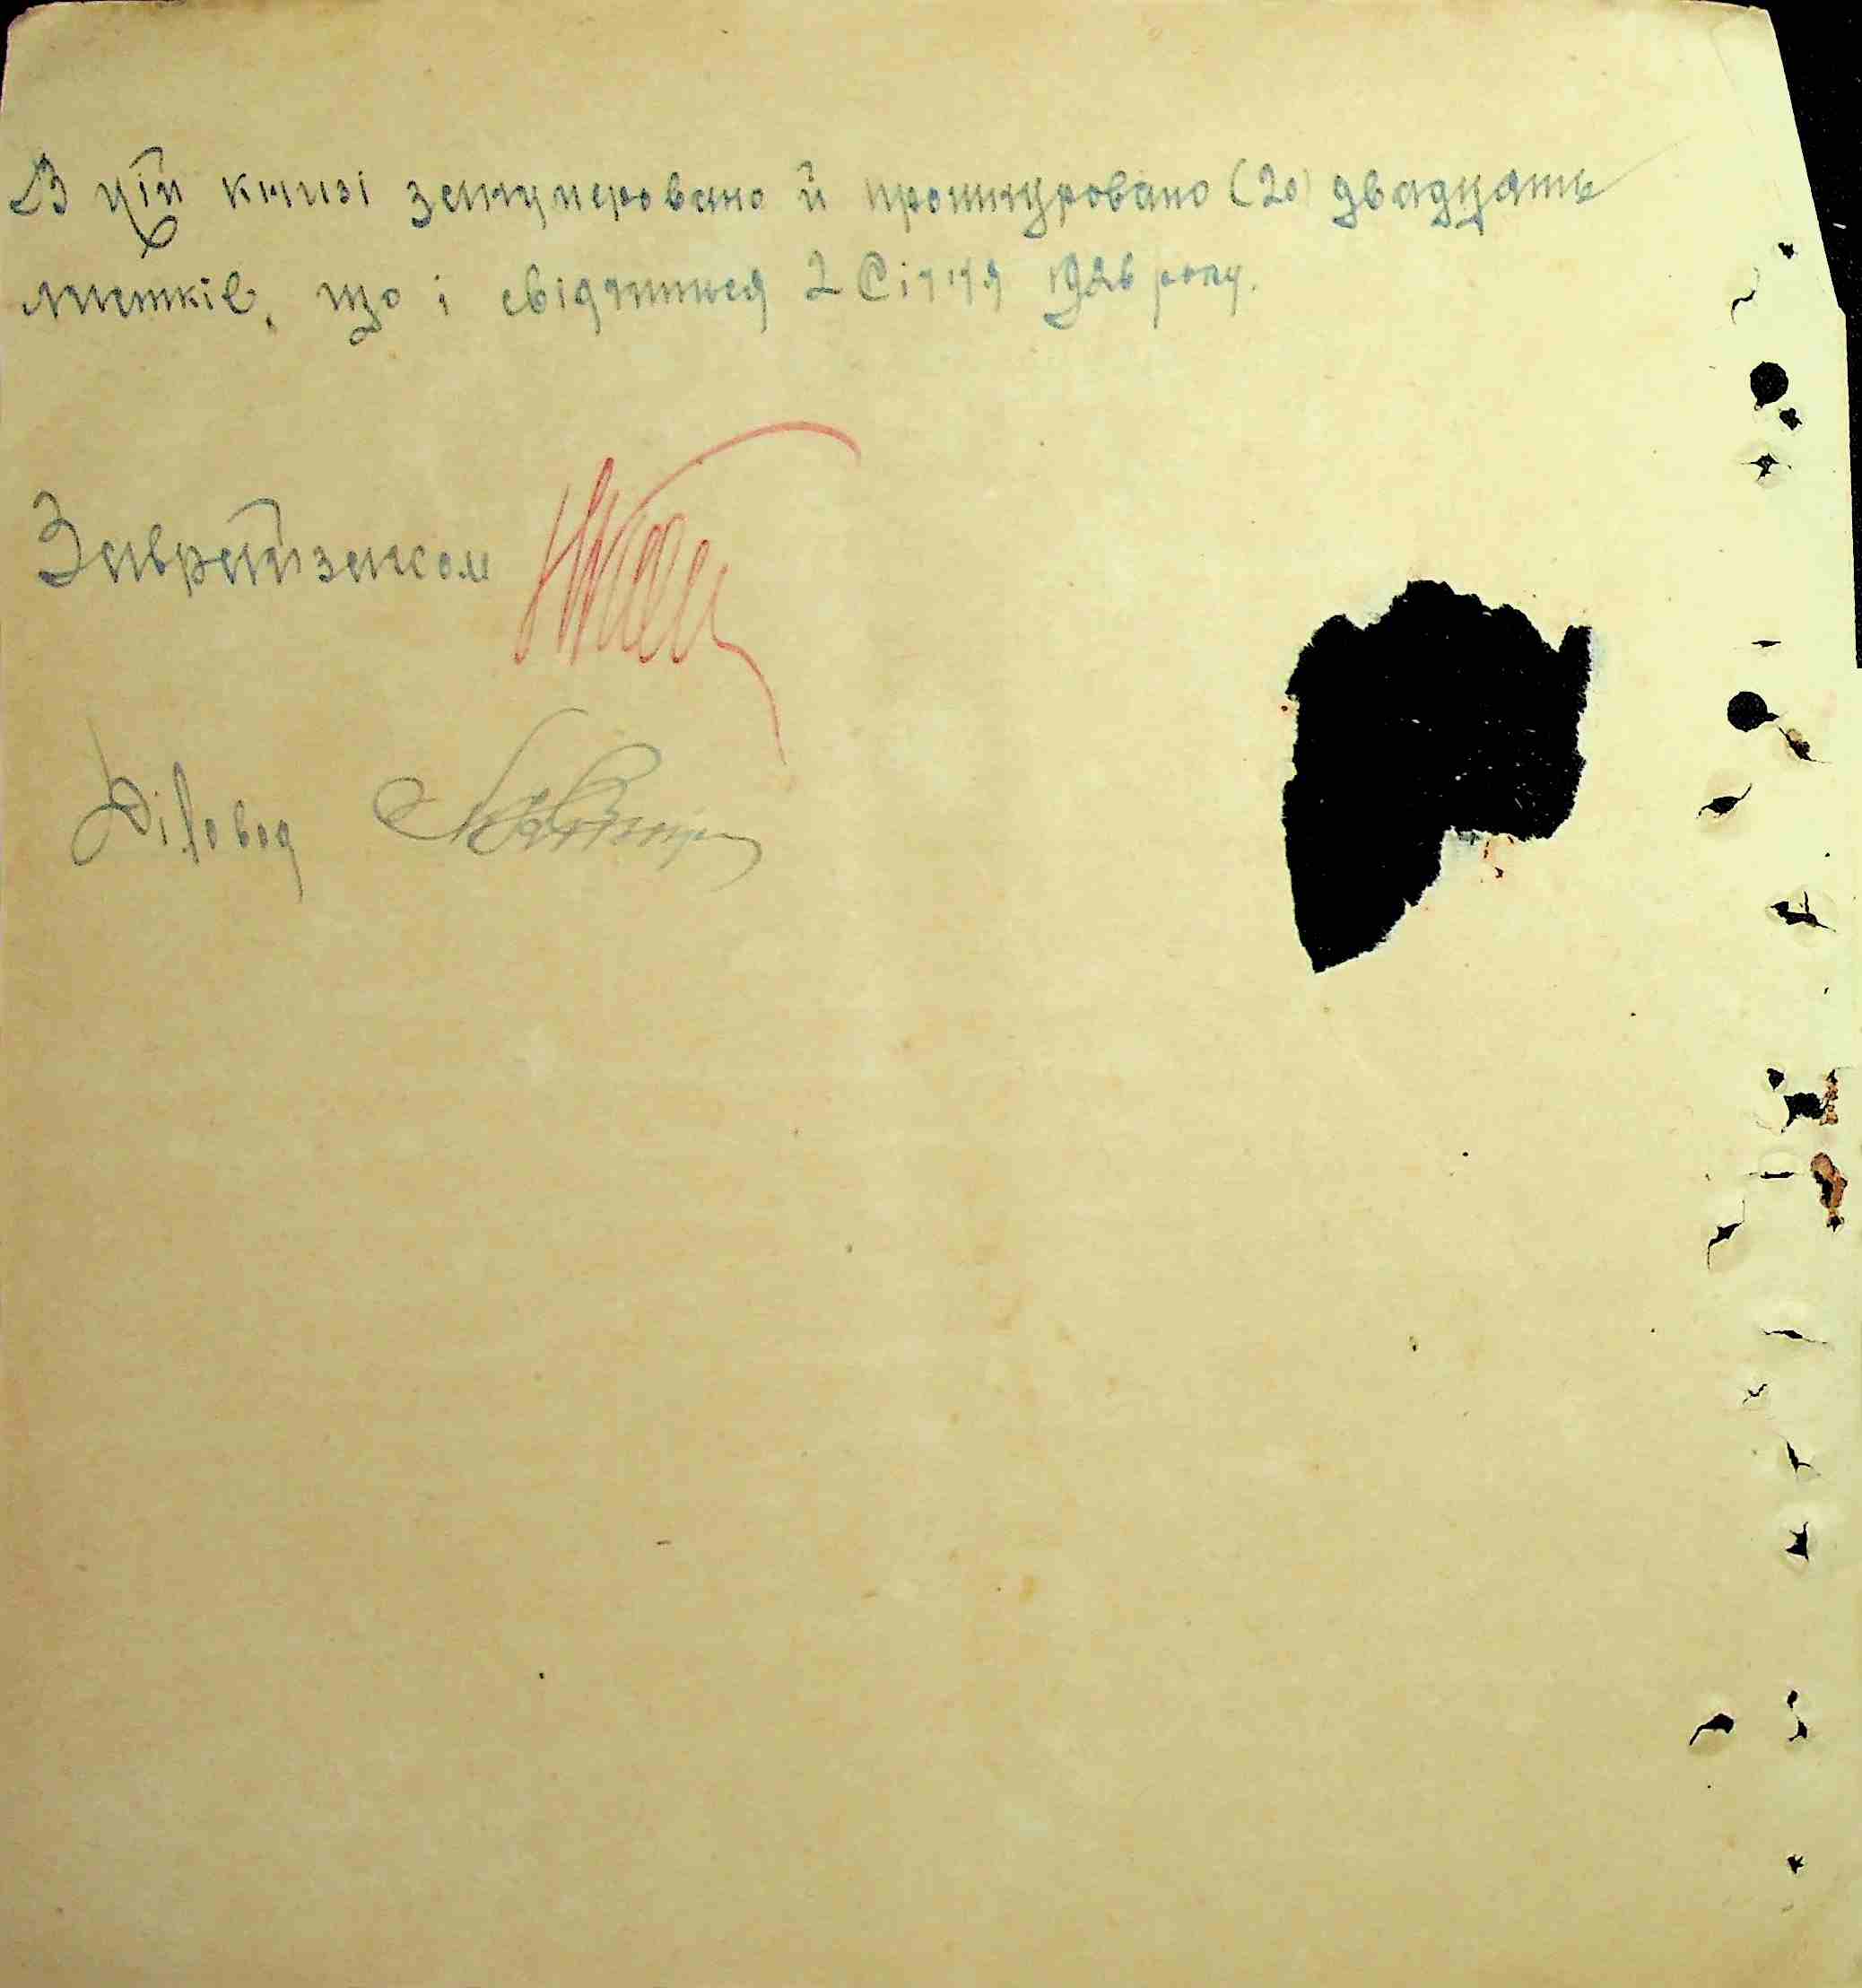 В цій книзі занумеровано й прошнуровано (20) двадцять
листків, що і свідчиться 2 Січня 1926 року.
Заврайзагсом
Діловод